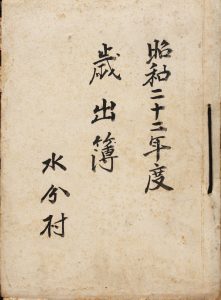 昭和二十二年度
歳出簿
水分村